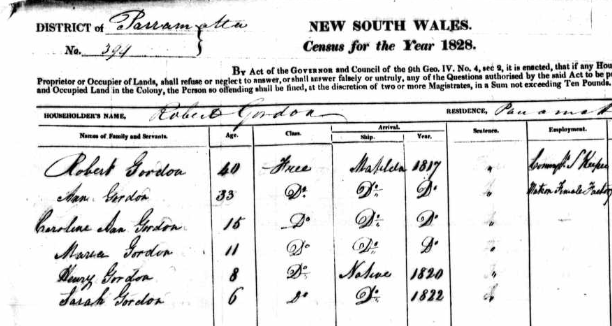 DISTRICT of Parramatta
No. 391
NEW SOUTH WALES.
Census for the Year 1828.
By Act of the GOVERNOR and COUNCIL of the 9th Geo. IV. No. 4, sec 2, it is enacted, that if any Hou
Proprietor or Occupier of Lands, shall refuse or neglect to answer, or shall answer falsely or untruly, any of the Questions authorised by the said Act to be p
and Occupied Land in the Colony, the Person so offending shall be fined, at the discretion of two or more Magistrates, in a Sum not exceeding Ten Pounds.
HOUSEHOLDER'S NAME, Robert Gordon RESIDENCE, Paramatt
Names of Family and Servants. Age. Class. Arrival. Ship. Year. Sentence. Employment.
Robert Gordon 40 Free Matilda 1817 " S Keeper
Ann Gordon 33 Do Do Do " Matron Female Factory
Caroline Ann Gordon 15 Do Do Do "
Maria Gordon 11 Do Do Do "
Henry Gordon 8 Do Native 1820 "
Sarah Gordon 6 Do Do 1822 "